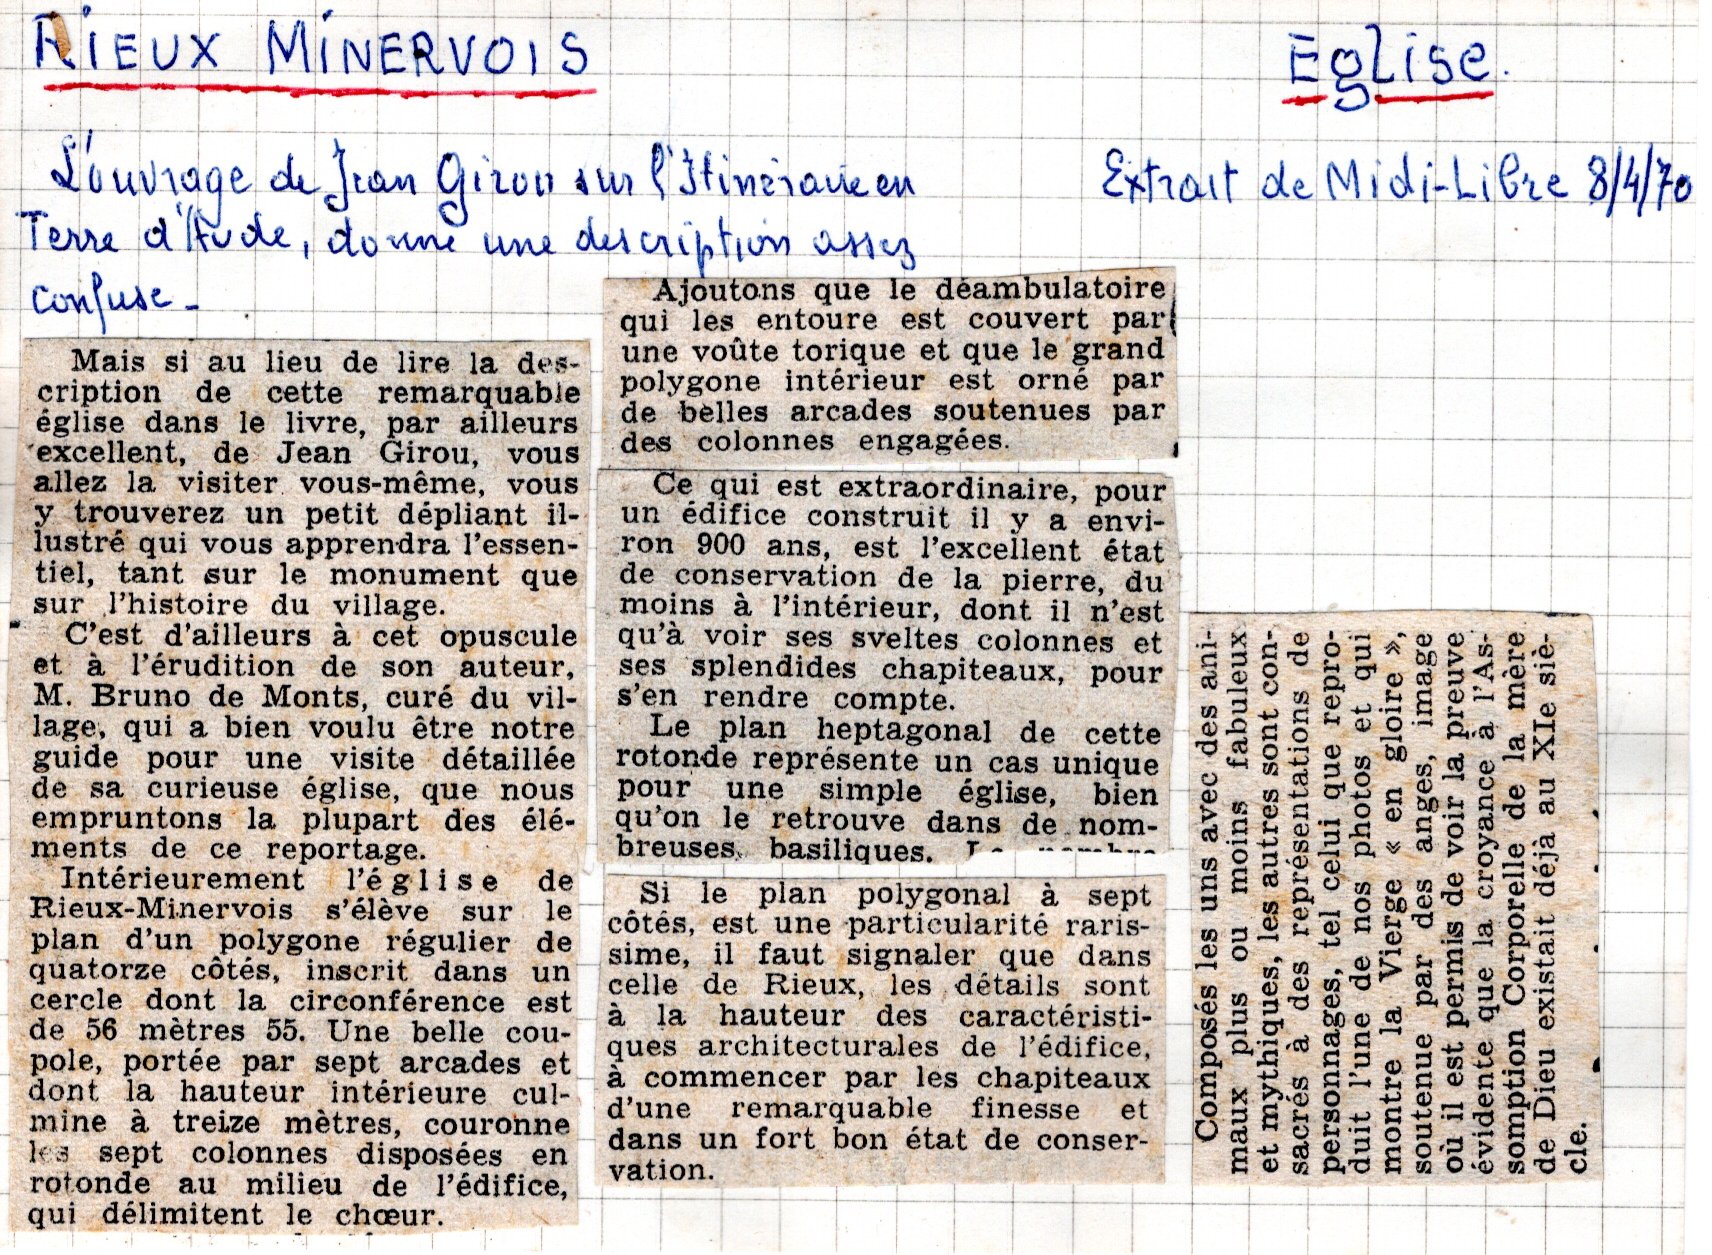 RIEUX MINERVOIS
Eglise.
L'ouvrage de Jean Girou sur l'Itinéraire en
Terre d'Aude, donne une description assez
confuse -
Extrait de Midi-Libre 8/4/70
Mais si au lieu de lire la des-
cription de cette remarquable
église dans le livre, par ailleurs
excellent, de Jean Girou, vous
allez la visiter vous-même, vous
y trouverez un petit dépliant il-
lustré qui vous apprendra l'essen-
tiel, tant sur le monument que
sur l'histoire du village.
C'est d'ailleurs à cet opuscule
et à l'érudition de son auteur,
M. Bruno de Monts, curé du vil-
lage, qui a bien voulu être notre
guide pour une visite détaillée
de sa curieuse église, que nous
empruntons la plupart des élé-
ments de ce reportage.
Intérieurement l'église de
Rieux-Minervois s'élève sur le
plan d'un polygone régulier de
quatorze côtés, inscrit dans un
cercle dont la circonférence est
de 56 mètres 55. Une belle cou-
pole, portée par sept arcades et
dont la hauteur intérieure cul-
mine à treize mètres, couronne
les sept colonnes disposées en
rotonde au milieu de l'édifice,
qui délimitent le chœur.
Ajoutons que le déambulatoire
qui les entoure est couvert par
une voûte torique et que le grand
polygone intérieur est orné par
de belles arcades soutenues par
des colonnes engagées.
Ce qui est extraordinaire, pour
un édifice construit il y a envi-
ron 900 ans, est l'excellent état
de conservation de la pierre, du
moins à l'intérieur, dont il n'est
qu'à voir ses sveltes colonnes et
ses splendides chapiteaux, pour
s'en rendre compte.
Le plan heptagonal de cette
rotonde représente un cas unique
pour une simple église, bien
qu'on le retrouve dans de nom-
breuses basiliques.
Si le plan polygonal à sept
côtés, est une particularité raris-
sime, il faut signaler que dans
celle de Rieux, les détails sont
à la hauteur des caractéristi-
ques architecturales de l'édifice,
à commencer par les chapiteaux
d'une remarquable finesse et
dans un fort bon état de conser-
vation.
Composés les uns avec des ani-
maux plus ou moins fabuleux
et mythiques, les autres sont con-
sacrés à des représentations de
personnages, tel celui que repro-
duit l'une de nos photos et qui
montre la Vierge « en gloire »,
soutenue par des anges, image
où il est permis de voir la preuve
évidente que la croyance à l'As-
somption Corporelle de la mère
de Dieu existait déjà au XIe siè-
cle.